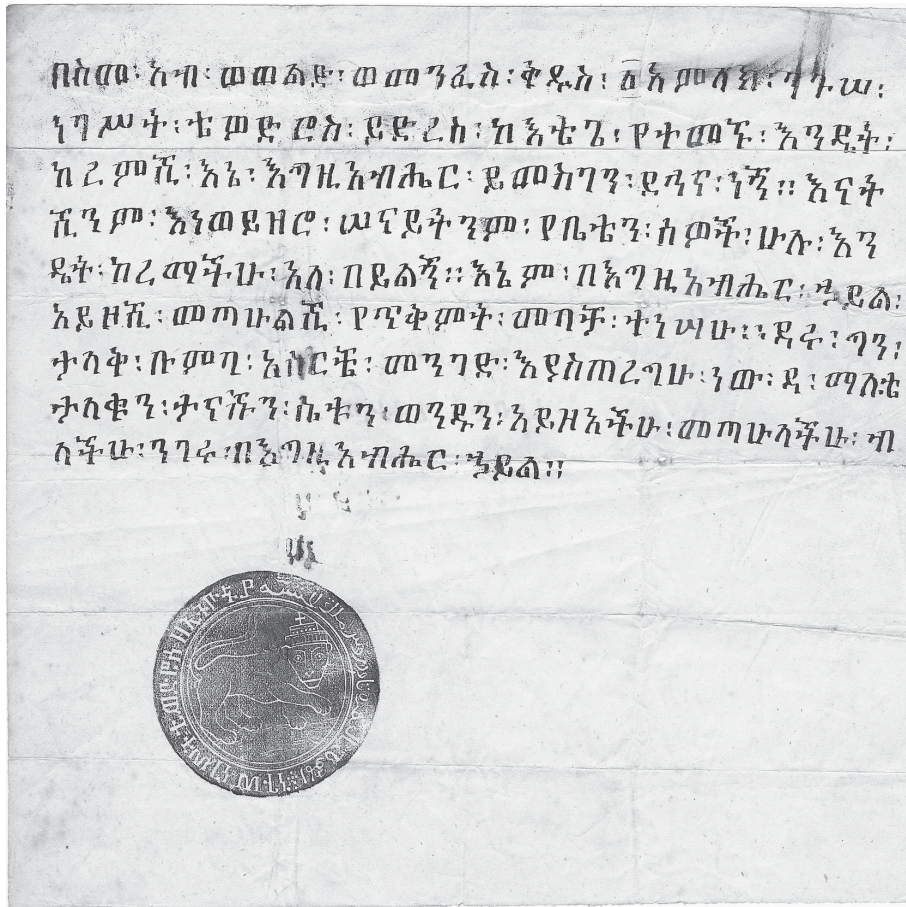 በስመ፡ አብ፡ ወወልድ፡ ወመንፈስ፡ ቅዱስ፡ ፩ አምላክ፡ ንጉሠ፡
ነገሥት፡ ቴዎድሮስ፡ ይድረስ፡ ከእቴጌ፡ የተመኙ፡ እንዴት፡
ከረምሺ፡ እኔ፡ እግዚአብሔር፡ ይመስገን፡ ደኅና፡ ነኝ። እናት
ሺንም፡ እነወይዘሮ፡ ሠናይትንም፡ የቤቴን፡ ሰዎች፡ ሁሉ፡ እን
ዴት፡ ከረማችሁ፡ እለ፡ በይልኝ። እኔም፡ በእግዚአብሔር፡ ኃይል፡
አይዞሺ፡ መጣሁልሺ፡ የጥቅምት፡ መባቻ፡ ተነሣሁ፡ ደሩ፡ ጣን፡
ታላቅ፡ ቡምባ፡ አሰርቼ፡ መንገድ፡ እያስጠረግሁ፡ ነው፡ ዳ፡ ማለቴ
ታላቁን፡ ታናሹን፡ ሴቱን፡ ወንዱን፡ አይዞአችሁ፡ መጣሁላችሁ፡ ብ
ላችሁ፡ ንገሩ፡ በእግዚአብሔር፡ ኃይል።